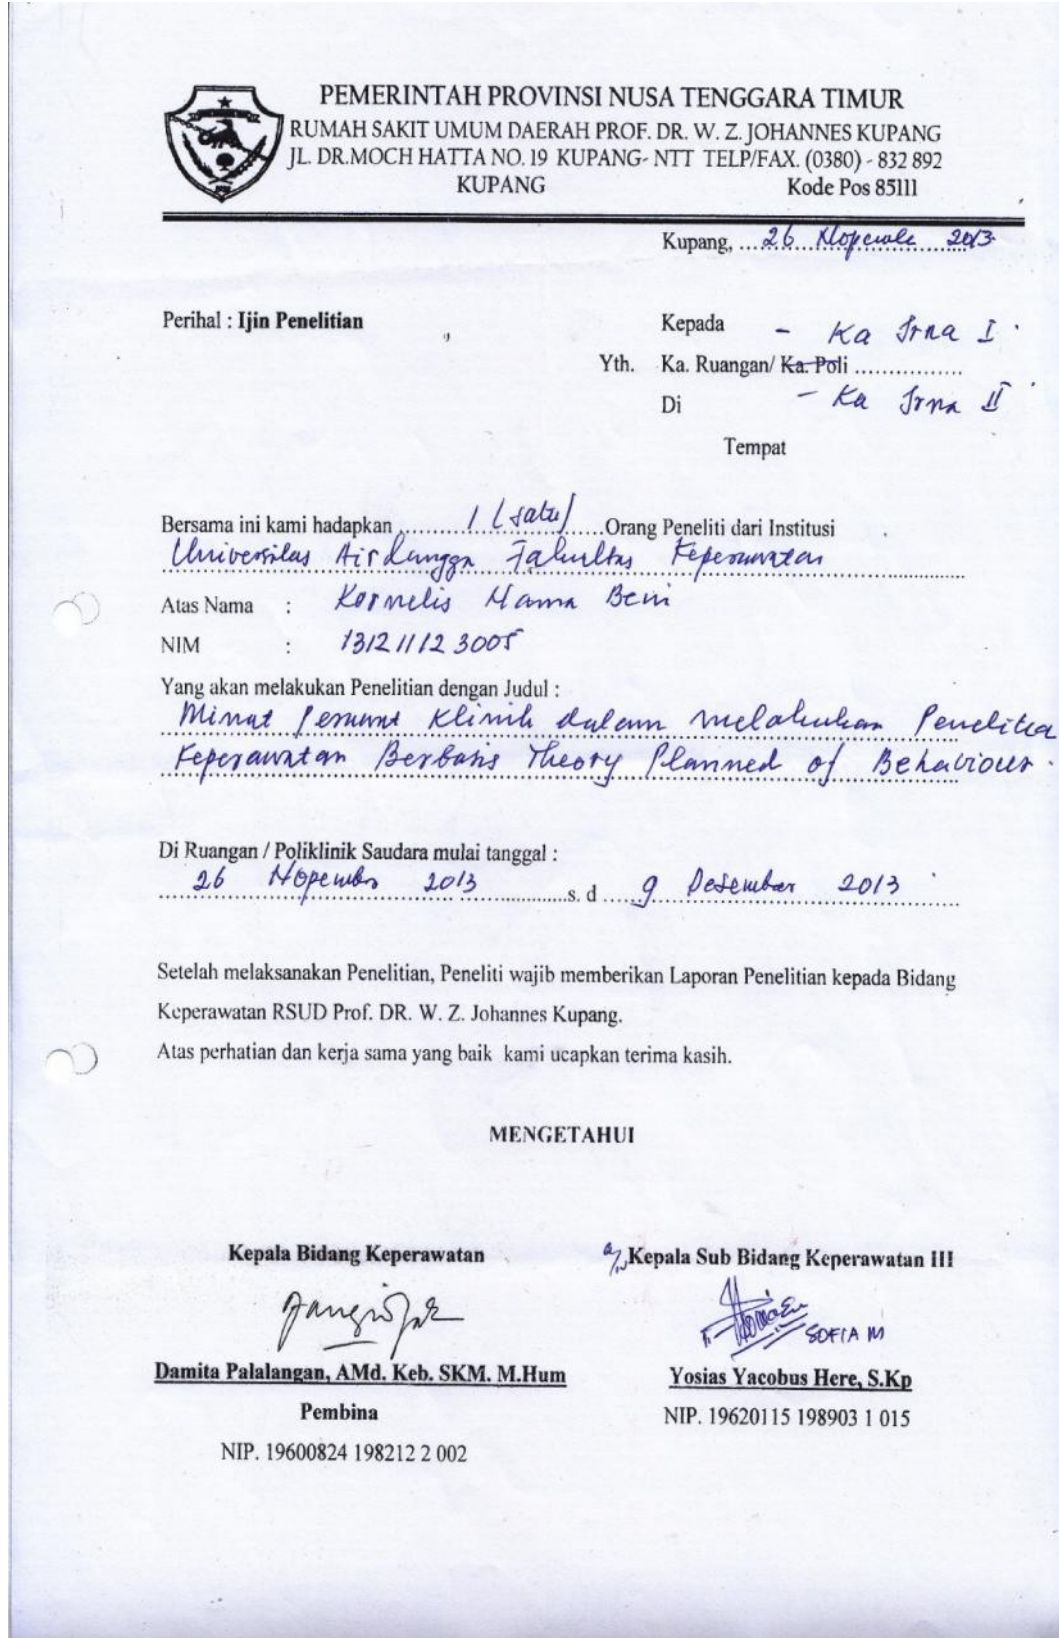 PEMERINTAH PROVINSI NUSA TENGGARA TIMUR
RUMAH SAKIT UMUM DAERAH PROF. DR. W. Z. JOHANNES KUPANG
JL. DR.MOCH HATTA NO. 19 KUPANG- NTT TELP/FAX. (0380) - 832 892
KUPANG Kode Pos 85111
Kupang, ...26 Nopember 2013
Perihal : Ijin Penelitian
Kepada - Ka Irna I
Yth. Ka. Ruangan/ Ka. Poli ................
Di - Ka Irna II
Tempat
Bersama ini kami hadapkan .........1 (satu)......Orang Peneliti dari Institusi
Universitas Airlangga Fakultas Keperawatan
Atas Nama : Kornelis Nama Beni
NIM : 131211123005
Yang akan melakukan Penelitian dengan Judul :
Minat Perawat Klinik dalam melakukan Penelitia
Keperawatan Berbasis Theory Planned of Behaviour.
Di Ruangan / Poliklinik Saudara mulai tanggal :
26 Nopember 2013 ..................s. d ......9 Desember 2013
Setelah melaksanakan Penelitian, Peneliti wajib memberikan Laporan Penelitian kepada Bidang
Keperawatan RSUD Prof. DR. W. Z. Johannes Kupang.
Atas perhatian dan kerja sama yang baik kami ucapkan terima kasih.
MENGETAHUI
Kepala Bidang Keperawatan a/n Kepala Sub Bidang Keperawatan III
SOFIA M
Damita Palalangan, AMd. Keb. SKM. M.Hum Yosias Yacobus Here, S.Kp
Pembina NIP. 19620115 198903 1 015
NIP. 19600824 198212 2 002